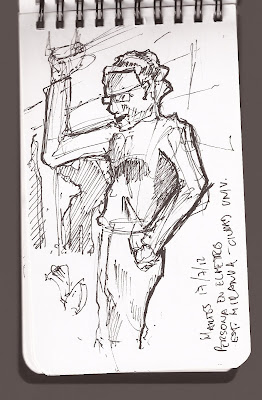 MARTES 17/7/12
PERSONA EN EL METRO
EST. MIRANDA - CIUDAD UNIV.